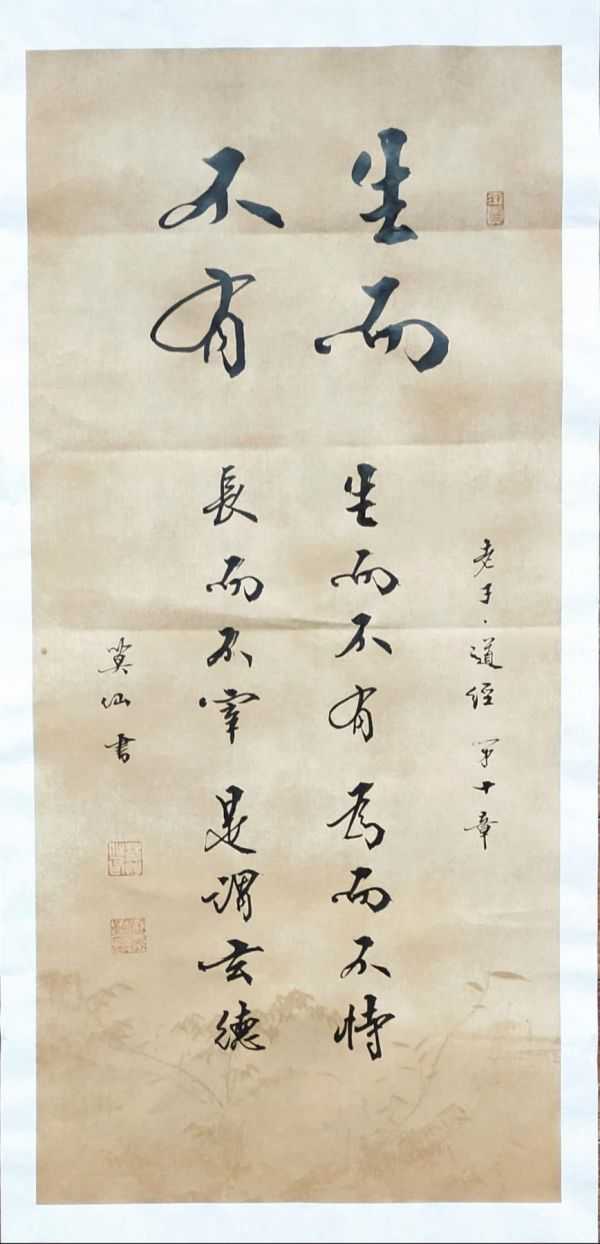 生而
不有
老子·道經 第十章
生而不有 為而不恃
長而不宰 是謂玄德
仙書